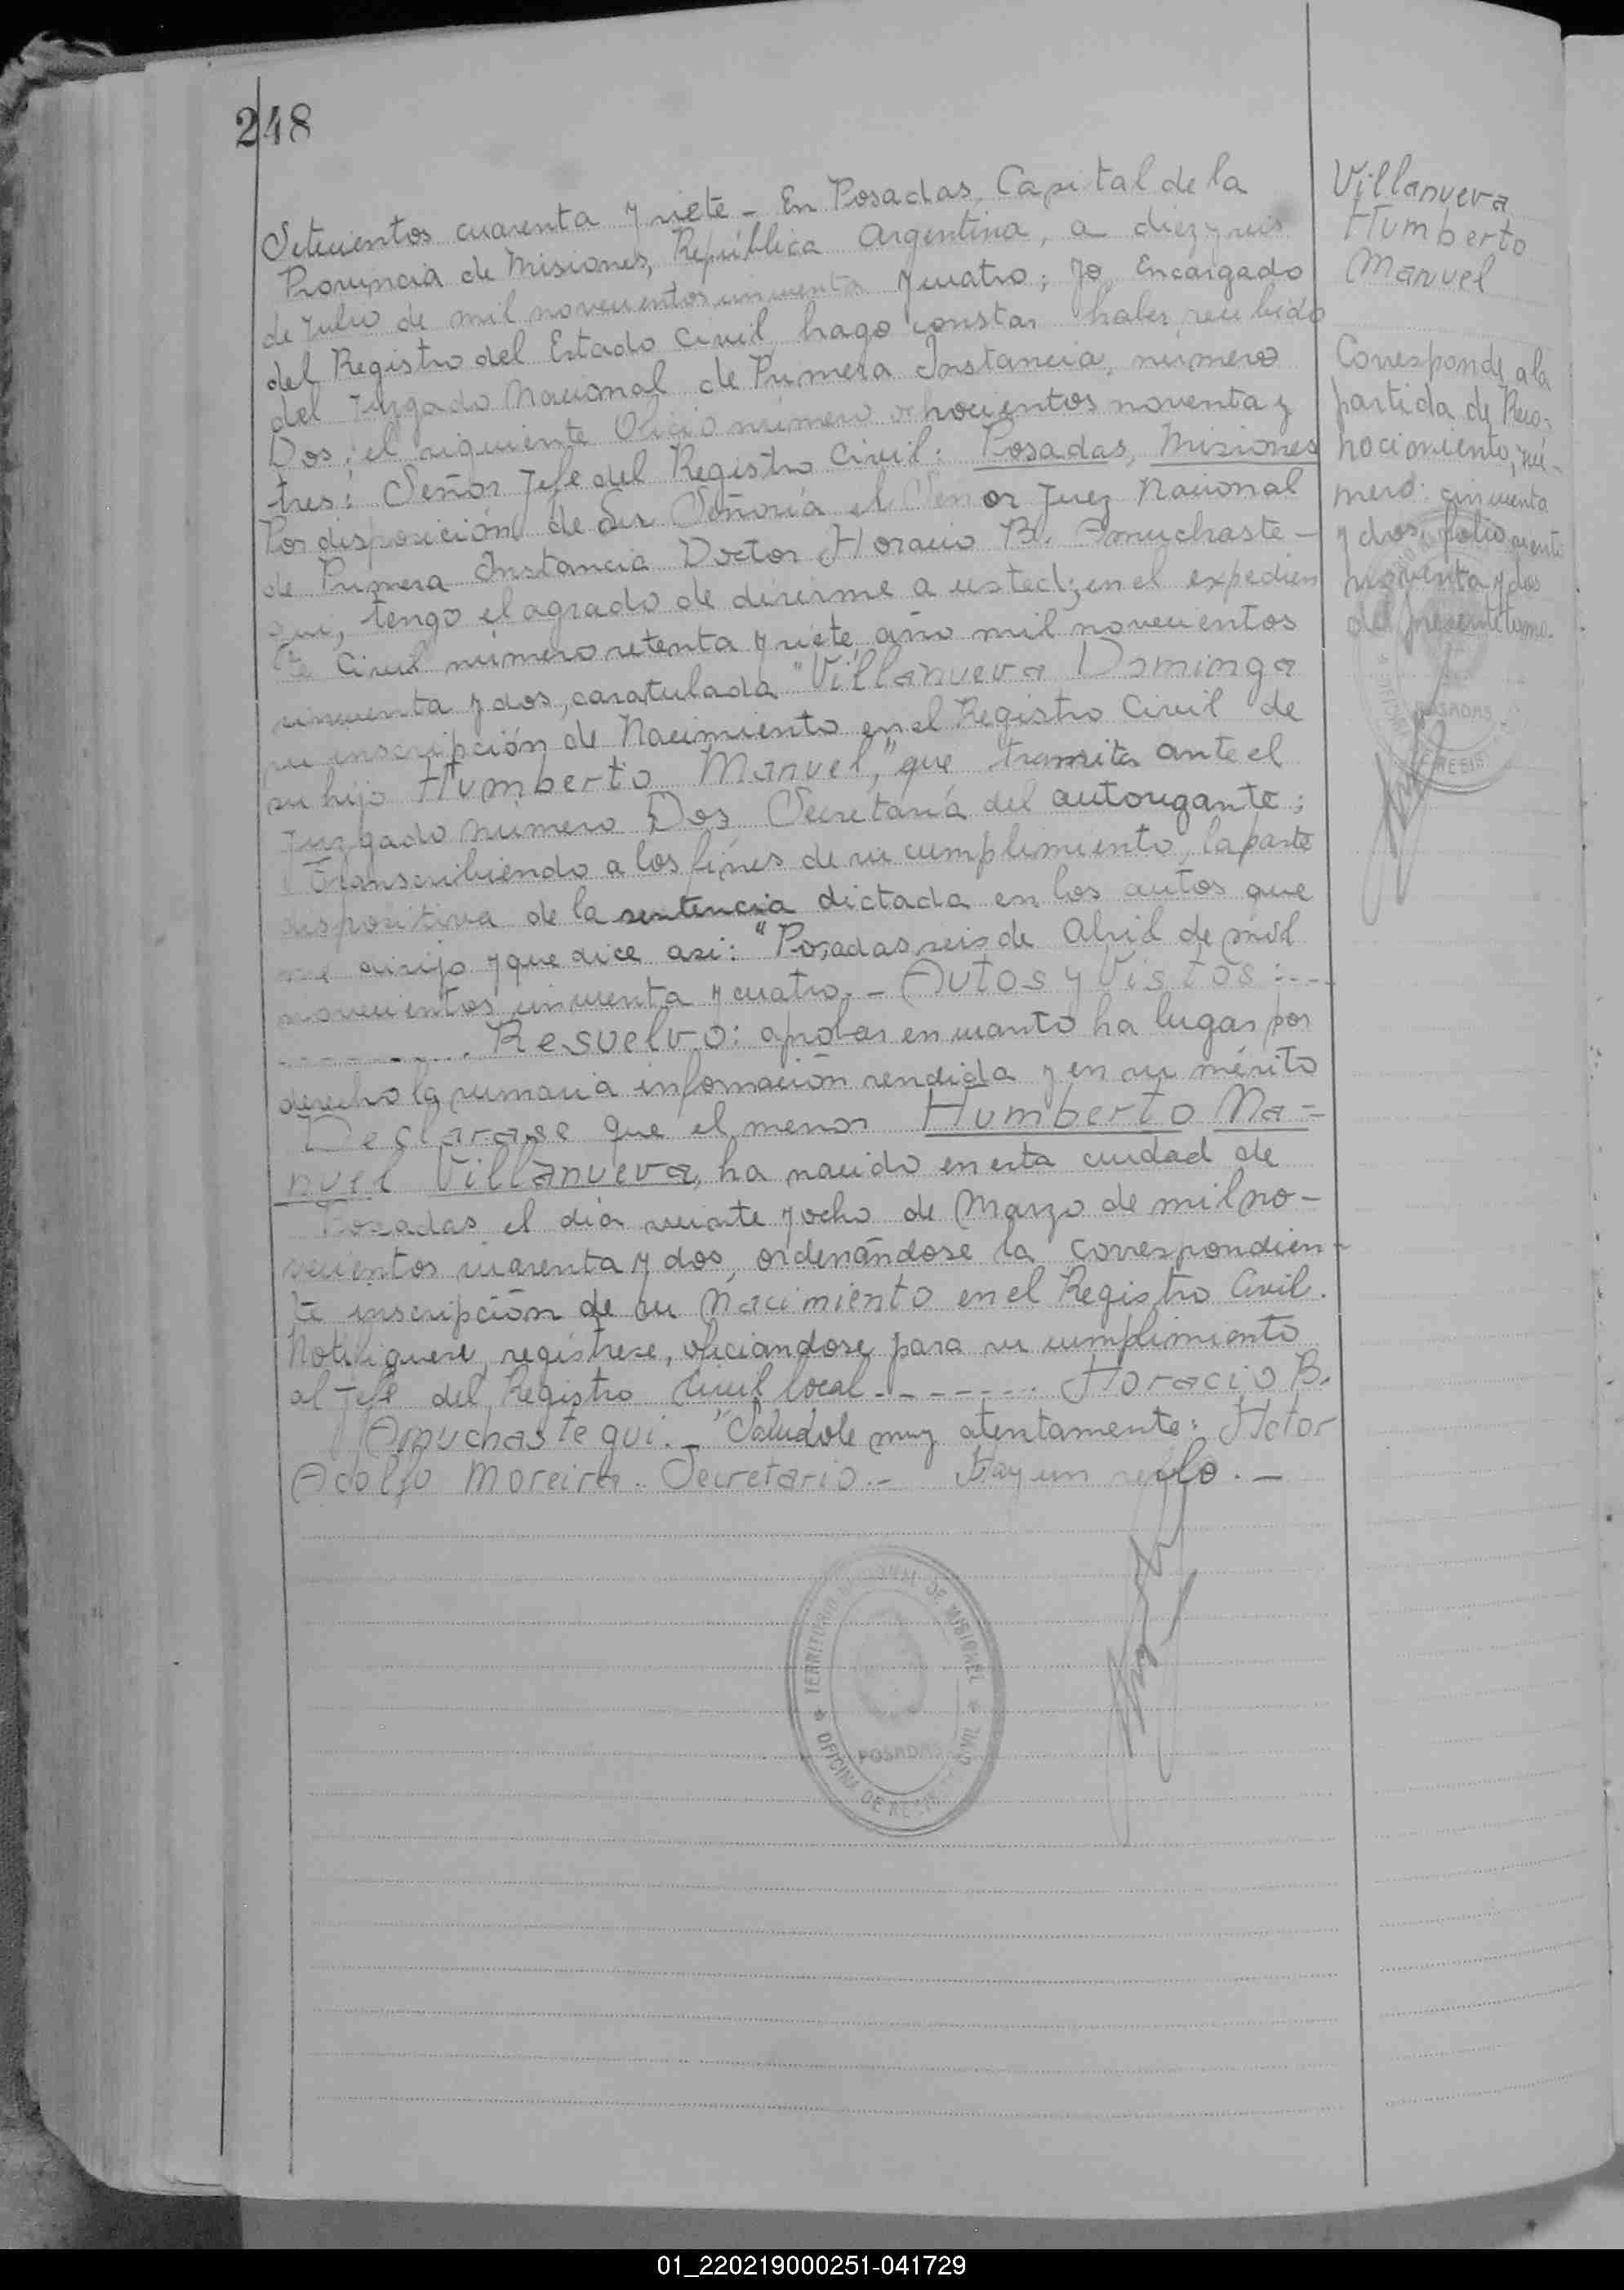 248
Setecientos cuarenta y siete - En Posadas, Capital de la
Provincia de Misiones, República Argentina, a diez y seis
de Julio de mil novecientos cincuenta y cuatro; yo Encargado
del Registro del Estado Civil hago constar haber recibido
del Juzgado Nacional de Primera Instancia, número
Dos; el siguiente Oficio número ochocientos noventa y
tres: Señor Jefe del Registro Civil: Posadas, Misiones
Por disposición de Su Señoría el Señor Juez Nacional
de Primera Instancia Doctor Horacio B. Amuchaste-
gui, tengo el agrado de dirirme a usted; en el expedien
te Civil número setenta y siete, año mil novecientos
cincuenta y dos, caratulada "Villanueva Dominga
su inscripción de Nacimiento en el Registro Civil de
su hijo Humberto Manuel," que tramita ante el
Juzgado número Dos Secretaría del autorizante;
Transcribiendo a los fines de su cumplimiento, la parte
dispositiva de la sentencia dictada en los autos que
me dirijo y que dice asi: "Posadas seis de Abril de mil
novecientos cincuenta y cuatro. - Autos y Vistos:...
.......... Resuelvo: aprobar en cuanto ha lugar por
derecho la sumaria información rendida y en su mérito
Declarase que el menor Humberto Ma=
nuel Villanueva, ha nacido en esta ciudad de
Posadas el día veinte y ocho de Marzo de mil no-
vecientos cuarenta y dos, ordenándose la correspondien-
te inscripción de su Nacimiento en el Registro Civil.
Notifiquese, regístrese, oficiandose para su cumplimiento
al Jefe del Registro Civil local - - - - - - - - Horacio B.
Amuchastegui. - "Saludole muy atentamente: Hctor
Adolfo Moreira. Secretario. - Hay un sello. -
Villanueva
Humberto
Manuel
Corresponde a la
partida de Reco-
nocimiento, nú-
mero: cincuenta
y dos, folio ciento
noventa y dos
del presente tomo.
POSADAS
TERRITORIO NACIONAL DE MISIONES
POSADAS
OFICINA DE REGISTRO CIVIL
01_220219000251-041729